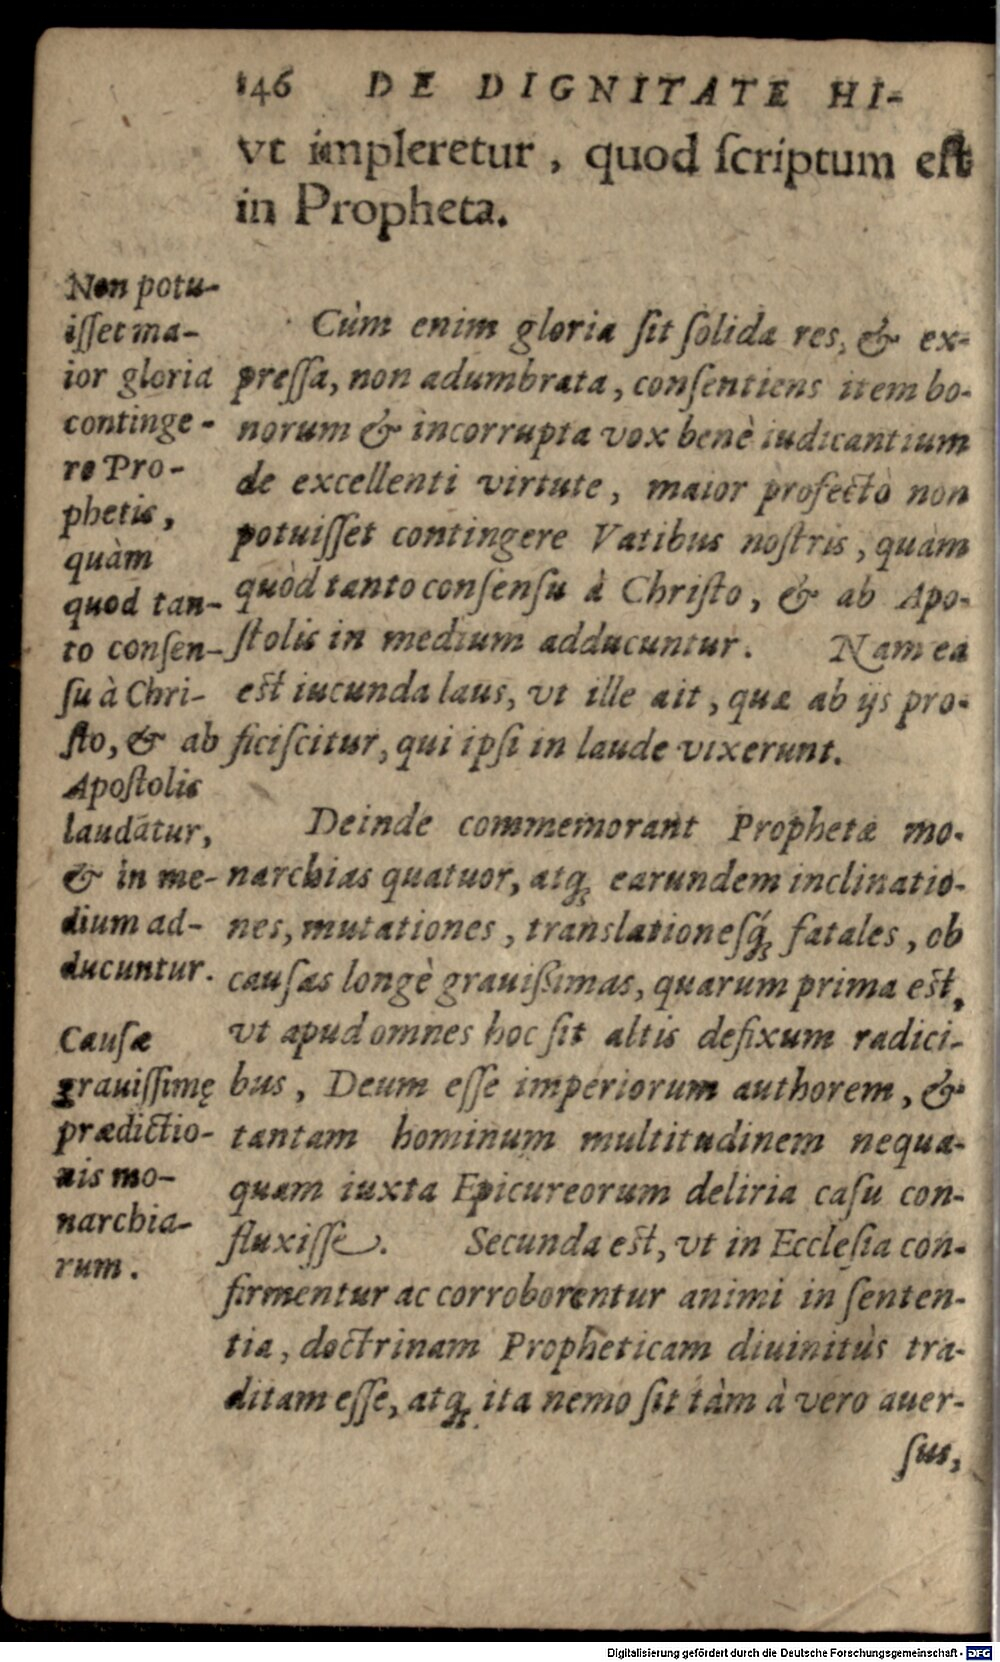 146 DE DIGNITATE HI-
vt impleretur, quod ſcriptum eſt
in Propheta.
Non potu-
iſſet ma-
ior gloria
continge-
re Pro-
phetis,
quàm
quod tan-
to conſen-
ſu à Chri-
ſto, & ab
Apoſtolis
laudātur,
& in me-
dium ad-
ducuntur.
Cùm enim gloria ſit ſolida res, & ex-
preſſa, non adumbrata, conſentiens item bo-
norum & incorrupta vox benè iudicantium
de excellenti virtute, maior profectò non
potuiſſet contingere Vatibus noſtris, quàm
quòd tanto conſenſu à Chriſto, & ab Apo-
ſtolis in medium adducuntur. Nam ea
eſt iucunda laus, vt ille ait, quæ ab ijs pro-
ficiſcitur, qui ipſi in laude vixerunt.
Cauſæ
grauiſſimę
prædictio-
nis mo-
narchia-
rum.
Deinde commemorant Prophetæ mo-
narchias quatuor, atq́; earundem inclinatio-
nes, mutationes, translationeſq́; fatales, ob
cauſas longè grauiſsimas, quarum prima eſt,
vt apud omnes hoc ſit altis defixum radici-
bus, Deum eſſe imperiorum authorem, &
tantam hominum multitudinem nequa-
quam iuxta Epicureorum deliria caſu con-
fluxiſſe. Secunda eſt, vt in Eccleſia con-
firmentur ac corroborentur animi in ſenten-
tia, doctrinam Propheticam diuinitùs tra-
ditam eſſe, atq; ita nemo ſit tàm à vero auer-
ſus,
Digitalisierung gefördert durch die Deutsche Forschungsgemeinschaft - DFG